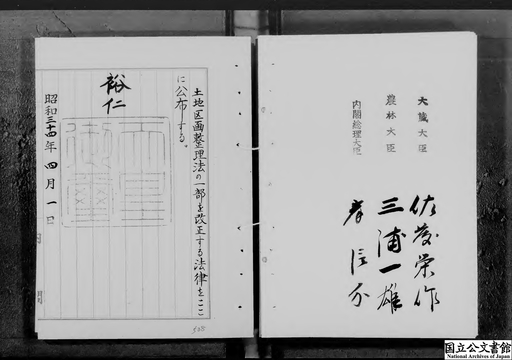 大蔵大臣 佐藤栄作
農林大臣 三浦一雄
内閣総理大臣 岸信介
土地区画整理法の一部を改正する法律をここ
に公布する。
裕仁
昭和三十四年四月一日
国立公文書館
National Archives of Japan